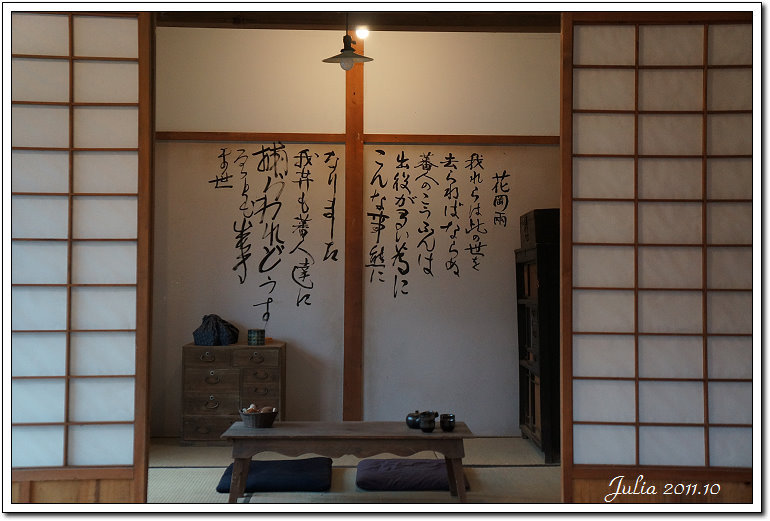 花岡両
我れらは此の世を
去らねばならぬ
蕃人のこうふんは
出役が多い為に
こんな事件に
なりました
我等も蕃人達に
捕らわれどうす
ることも出来
ま世
Julia 2011.10